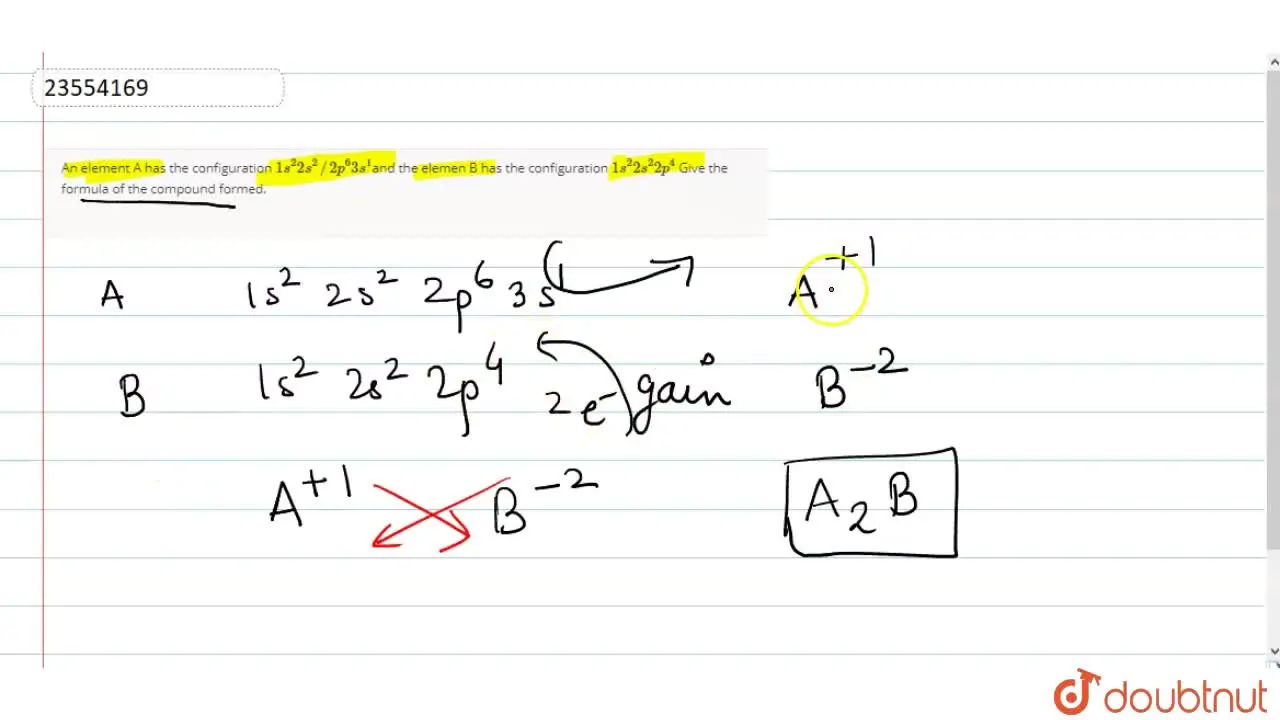 23554169
An element A has the configuration 1s²2s²/2p⁶3s¹and the elemen B has the configuration 1s²2s²2p⁴ Give the
formula of the compound formed.
A 1s² 2s² 2p⁶ 3s¹ A⁺¹
B 1s² 2s² 2p⁴ 2e⁻ gain B⁻²
A⁺¹ B⁻² A₂B
doubtnut